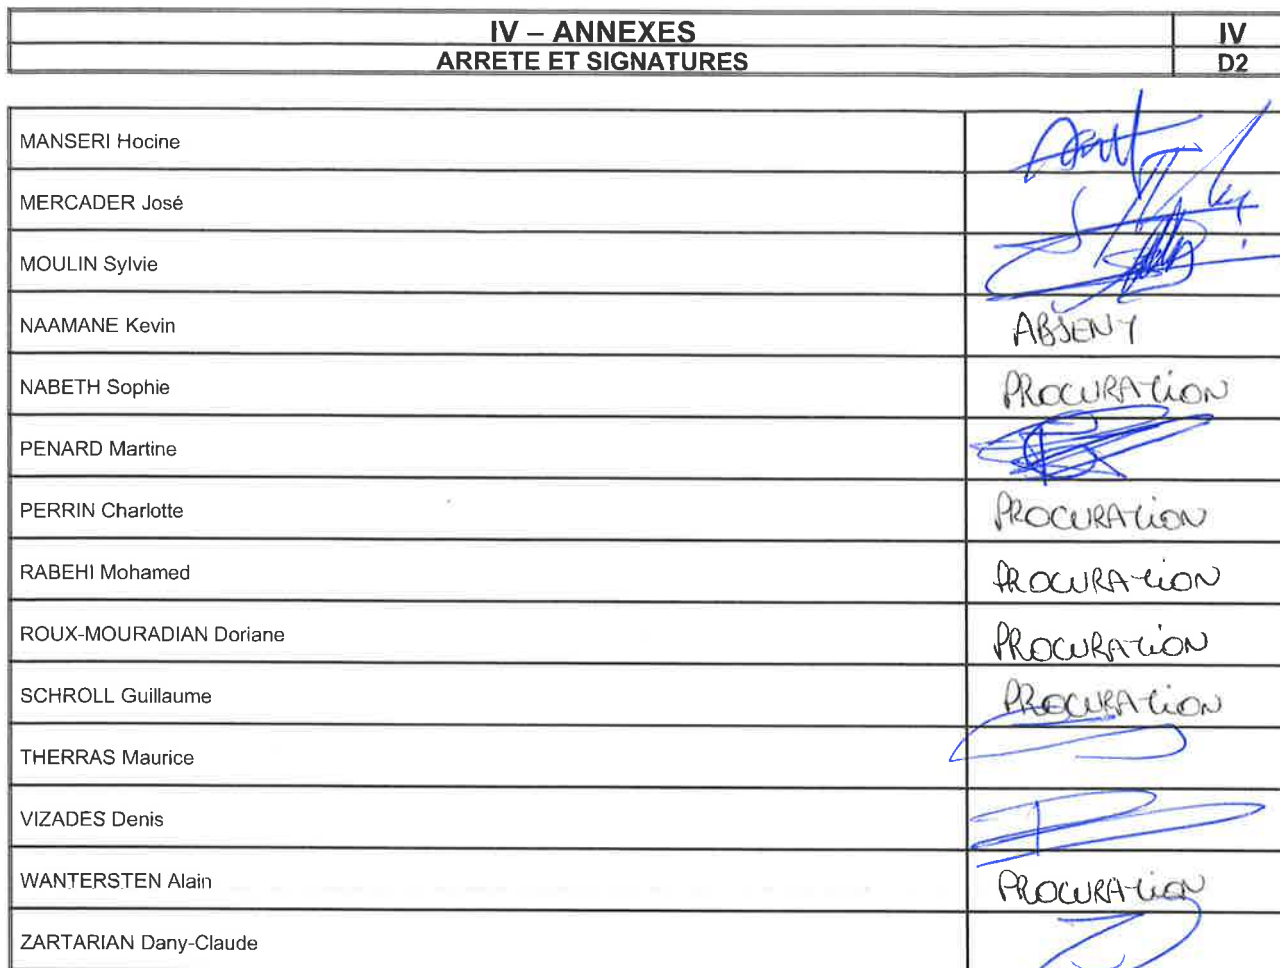 IV – ANNEXES
IV
ARRETE ET SIGNATURES
D2
MANSERI Hocine
MERCADER José
MOULIN Sylvie
NAAMANE Kevin
ABSENT
NABETH Sophie
PROCURATION
PENARD Martine
PERRIN Charlotte
PROCURATION
RABEHI Mohamed
PROCURATION
ROUX-MOURADIAN Doriane
PROCURATION
SCHROLL Guillaume
PROCURATION
THERRAS Maurice
VIZADES Denis
WANTERSTEN Alain
PROCURATION
ZARTARIAN Dany-Claude